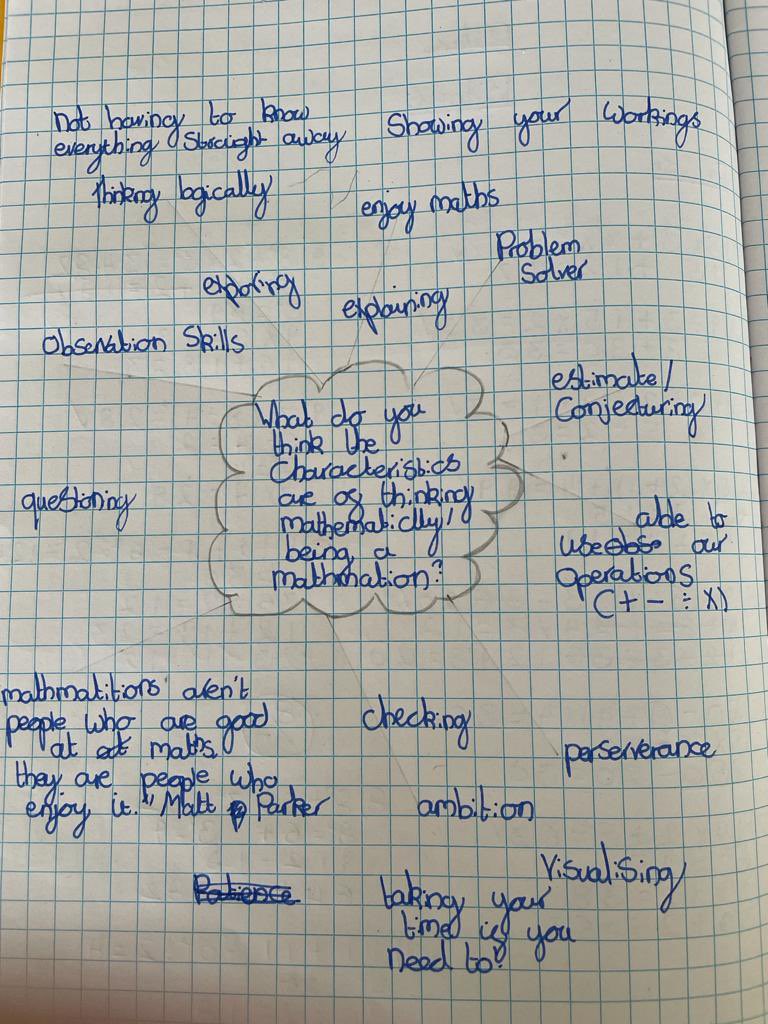 not having to know
everything straight away
Showing your workings
thinking logically
enjoy maths
Problem
Solver
exploring
explaining
Observation Skills
estimate/
Conjecturing
What do you
think the
Characteristics
are of thinking
mathematiclly/
being a
mathmation?
questioning
able to
use our
Operations
(+ - ÷ x)
mathmatitions aren't
people who are good
at maths.
they are people who
enjoy it." Matt Parker
checking
perserverance
ambition
Visualising
Patience
taking your
time if you
need to!